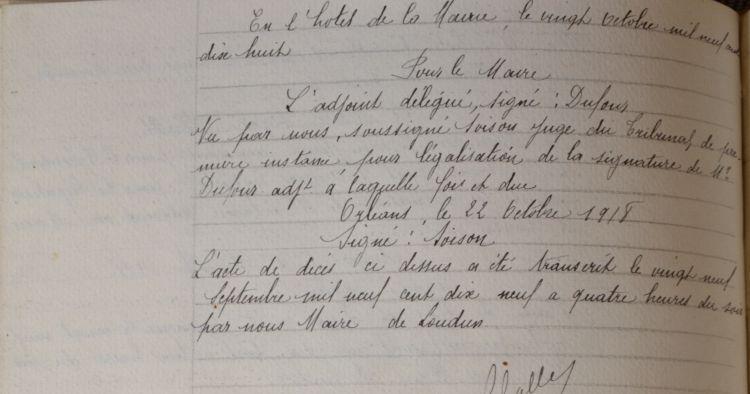 En l'hotel de la Mairie, le vingt octobre mil neuf cent
dix huit
Pour le Maire
L'adjoint délégué, signé : Dufour
Vu par nous, soussigné Soison juge du Tribunal de pre-
mière instance pour légalisation de la signature de Mr
Dufour adjt à laquelle foi est due
Orléans, le 22 Octobre 1918
Signé : Soison
L'acte de décès ci dessus a été transcrit le vingt neuf
Septembre mil neuf cent dix neuf a quatre heures du soir
par nous Maire de Loudun